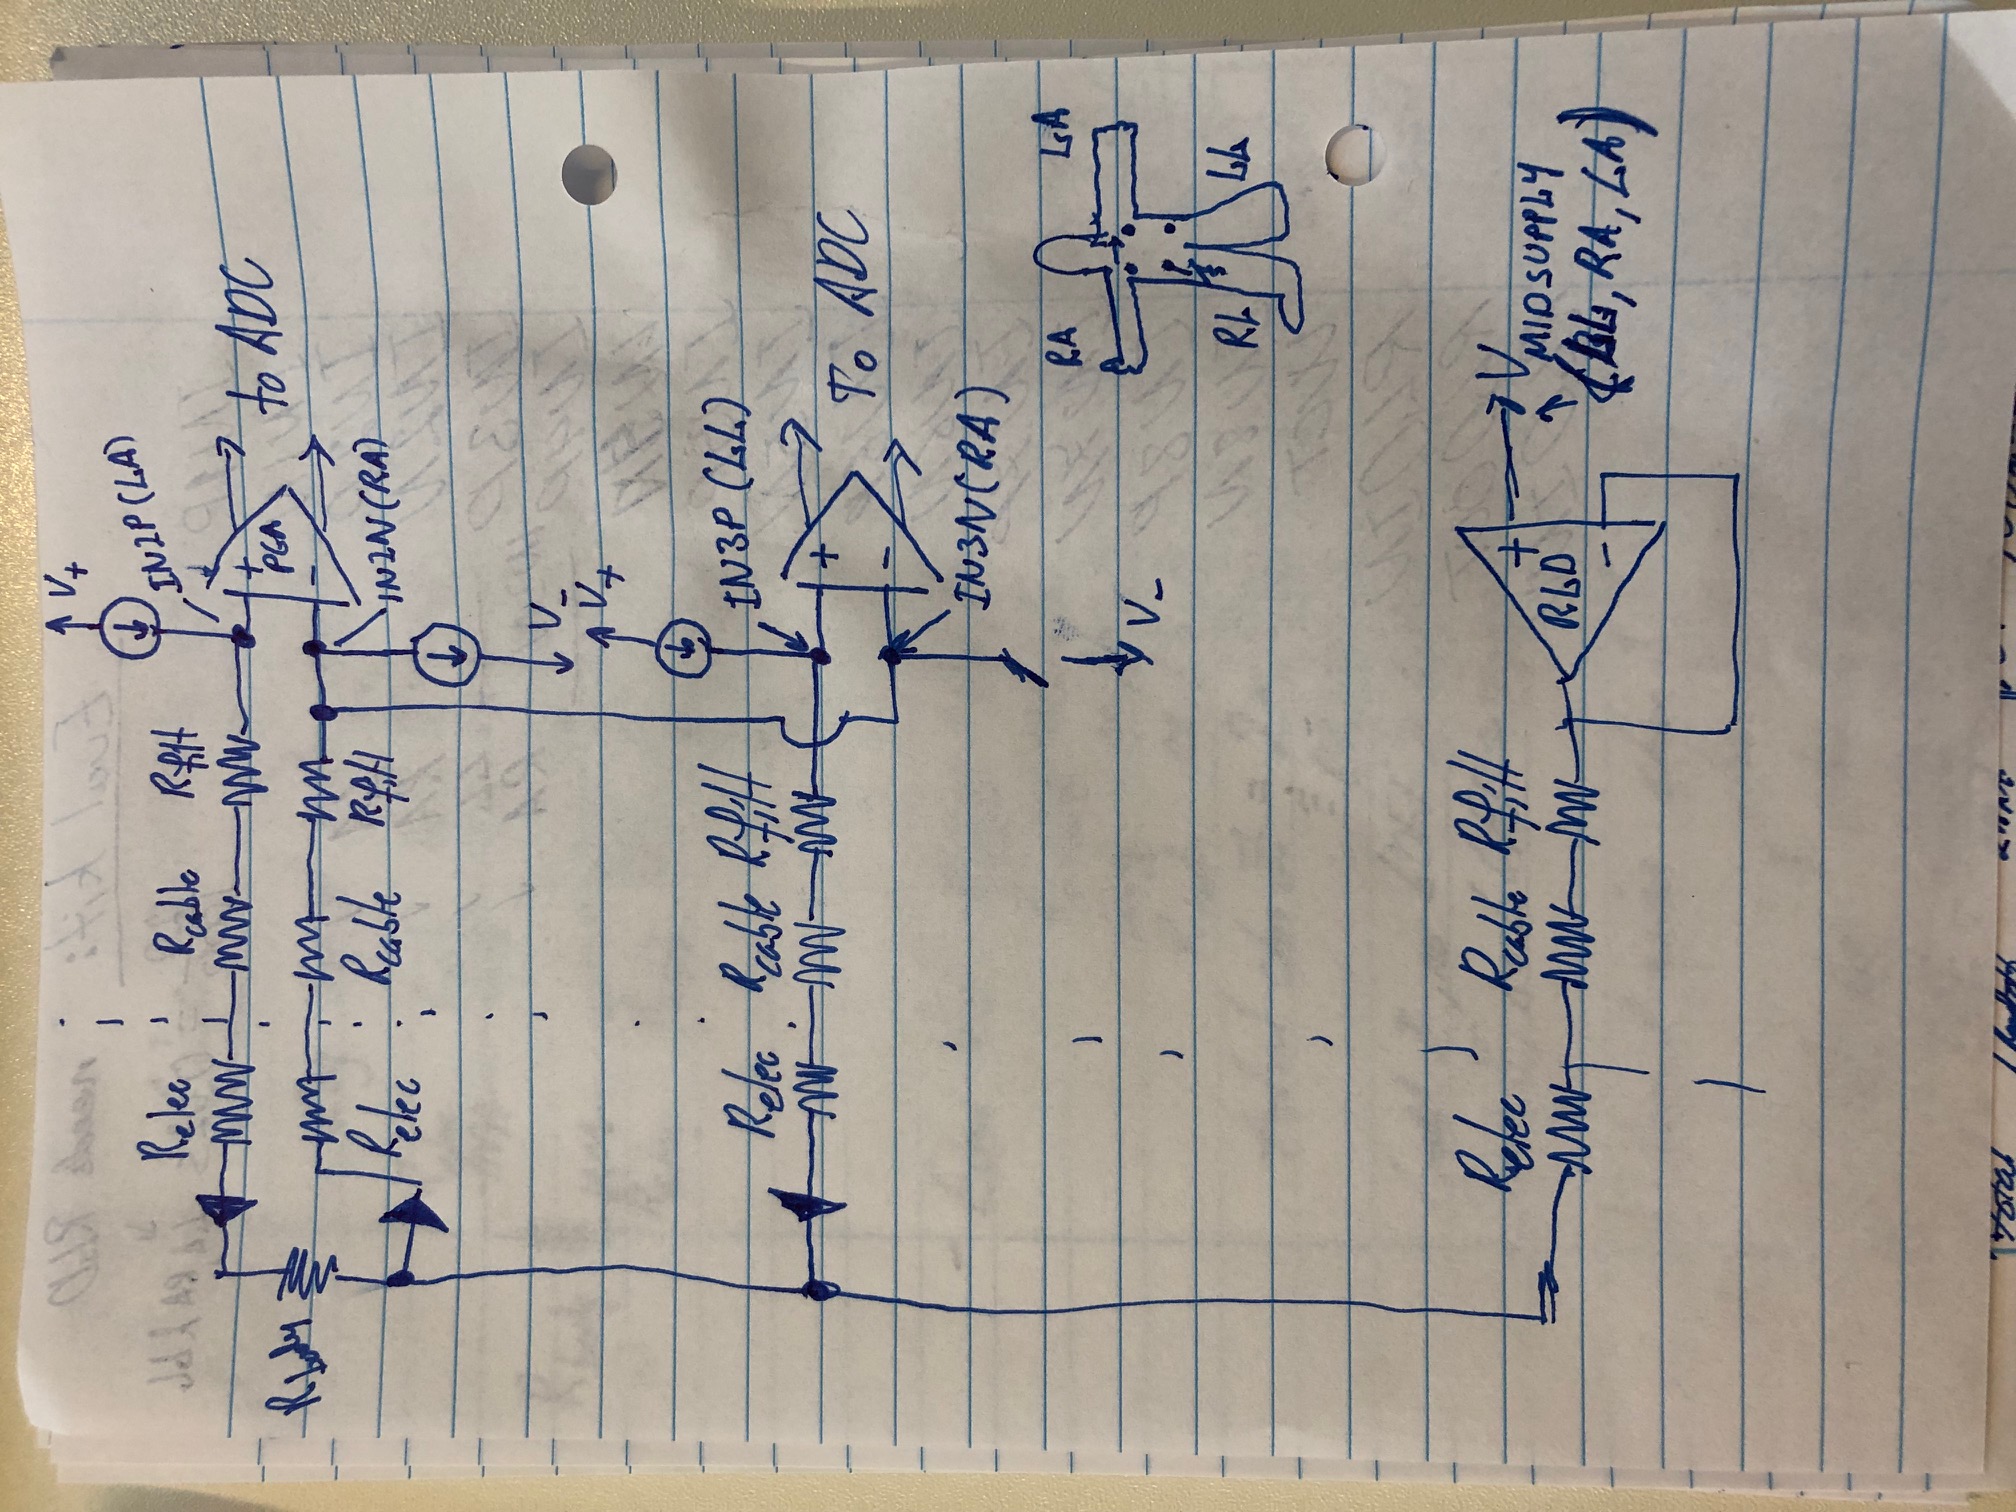 V+
IN2P(LA)
to ADC
+
PGA
-
IN2N(RA)
V-
Relec
Rcable
Rfilt
Relec
Rcable
Rfilt
Rbody
V+
IN3P(LL)
To ADC
+
-
IN3N(RA)
V-
Relec
Rcable
Rfilt
RA
LA
RL
LL
Relec
Rcable
Rfilt
+
RLD
-
VMIDSUPPLY
RA, LA)